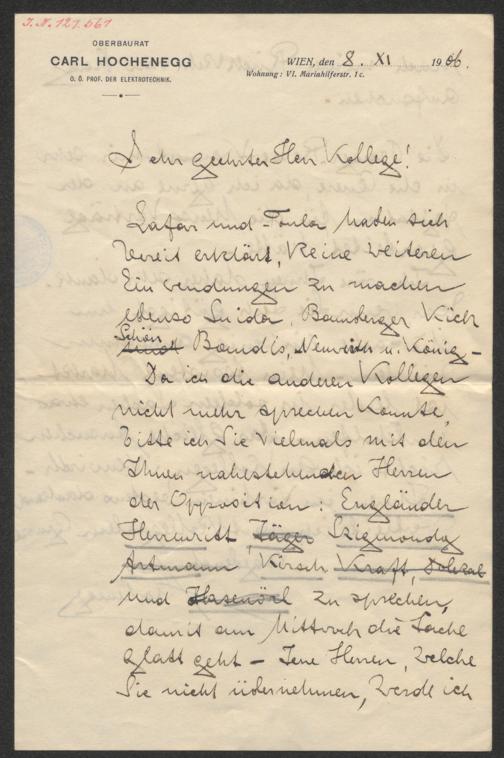 J.N. 121.561
OBERBAURAT
CARL HOCHENEGG
O. Ö. PROF. DER ELEKTROTECHNIK.
WIEN, den 8. XI 1906.
Wohnung: VI. Mariahilferstr. 1 c.
Sehr geehrter Herr Kollege!
Lafar und haben sich
bereit erklärt, keine weiteren
Einwendungen zu machen
ebenso Suida, Bamberger Kick
Schön
Bandis, Neuwirth u. König –
Da ich die anderen Kollegen
nicht mehr sprechen konnte,
bitte ich Sie vielmals mit den
Ihnen nahestehenden Herren
der Opposition: Engländer
Herrnritt, Jäger Szigmondy
Artmann, Kirsch Kraft, Dolezal
und Hasenörl zu sprechen,
damit am Mittwoch die Sache
glatt geht – Jene Herren, welche
Sie nicht übernehmen, werde ich